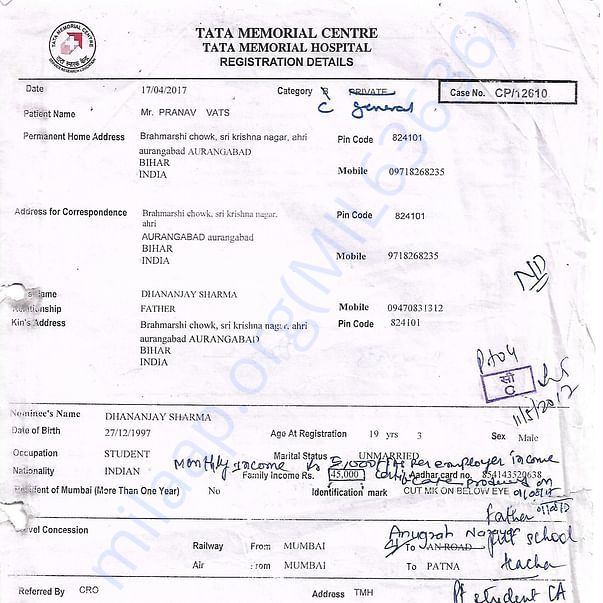 TATA MEMORIAL CENTRE
TATA MEMORIAL HOSPITAL
REGISTRATION DETAILS
Date 17/04/2017 Category B PRIVATE Case No. CP/12610
C general
Patient Name Mr. PRANAV VATS
Permanent Home Address Brahmarshi chowk, sri krishna nagar, ahri Pin Code 824101
aurangabad AURANGABAD
BIHAR
INDIA Mobile 09718268235
Address for Correspondence Brahmarshi chowk, sri krishna nagar, Pin Code 824101
ahri
AURANGABAD aurangabad
BIHAR
INDIA Mobile 9718268235
Name DHANANJAY SHARMA
Relationship FATHER Mobile 09470831312
Kin's Address Brahmarshi chowk, sri krishna nagar, ahri Pin Code 824101
aurangabad AURANGABAD
BIHAR
INDIA
सी
C
11/5/2017
Nominee's Name DHANANJAY SHARMA
Date of Birth 27/12/1997 Age At Registration 19 yrs 3 Sex Male
Occupation STUDENT Marital Status UNMARRIED
Monthly income Rs as per employer income
Nationality INDIAN Family Income Rs. 45,000 Aadhar card no. 854143520638
certificate produced on
Resident of Mumbai (More Than One Year) No Identification mark CUT MK ON BELOW EYE
father
Travel Concession
Railway From MUMBAI To AN ROAD
Anugrah Narayan
school
teacher
Air From MUMBAI To PATNA
Referred By CRO Address TMH
Pt student CA
milaap.org(MIL63636)